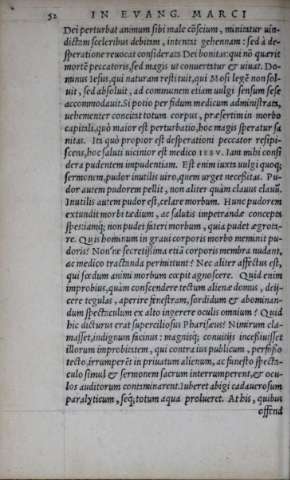 52 IN EVANG. MARCI
Dei perturbat animum sibi male cõscium, minitatur uin-
dictam sceleribus debitam, intentat gehennam: sed à de-
speratione reuocat considerata Dei bonitas: qui nõ quærit
mortẽ peccatoris, sed magis ut conuertatur & uiuat. Do-
minus Iesus, qui naturam restituit, qui Mosi legẽ non sol-
uit, sed absoluit, ad communem etiam uulgi sensum sese
accommodauit. Si potio per fidum medicum administrata,
uehementer concitat totum corpus, præsertim in morbo
capitali, quò maior est perturbatio, hoc magis speratur sa
nitas. Ita quò propior est desperationi peccator resipi-
scens, hoc saluti uicinior est medico IESV. Iam mihi consi
dera pudentem impudentiam. Est enim iuxta uulgi quoq;
sermonem, pudor inutilis uiro, quem urget necessitas. Pu-
dor autem pudorem pellit, non aliter quàm clauus clauũ.
Inutilis autem pudor est, celare morbum. Hunc pudorem
extundit morbi tædium, ac salutis impetrandæ concepta
spes: itaq; non pudet fateri morbum, quia pudet ægrota-
re. Quis hominum in graui corporis morbo meminit pu-
doris? Non'ne secretissima etiã corporis membra nudant,
ac medico tractanda permittunt? Nec aliter affectus est,
qui fœdum animi morbum cœpit agnoscere. Quid enim
improbius, quàm conscendere tectum alienæ domus, deij-
cere tegulas, aperire finestram, sordidum & abominan-
dum spectaculum ex alto ingerere oculis omnium? Quid
hic dicturus erat superciliosus Phariseus? Nimirum cla-
masset, indignum facinus: magnisq; conuitijs incessiuisset
illorum improbitatem, qui contra ius publicum, perfosso
tecto irrumperẽt in priuatum alienum, ac funesto specta-
culo simul & sermonem sacrum interrumperent, & ocu-
los auditorum contaminarent. Iuberet abigi cadauerosum
paralyticum, seq; totum aqua prolueret. At his, quibus
offend